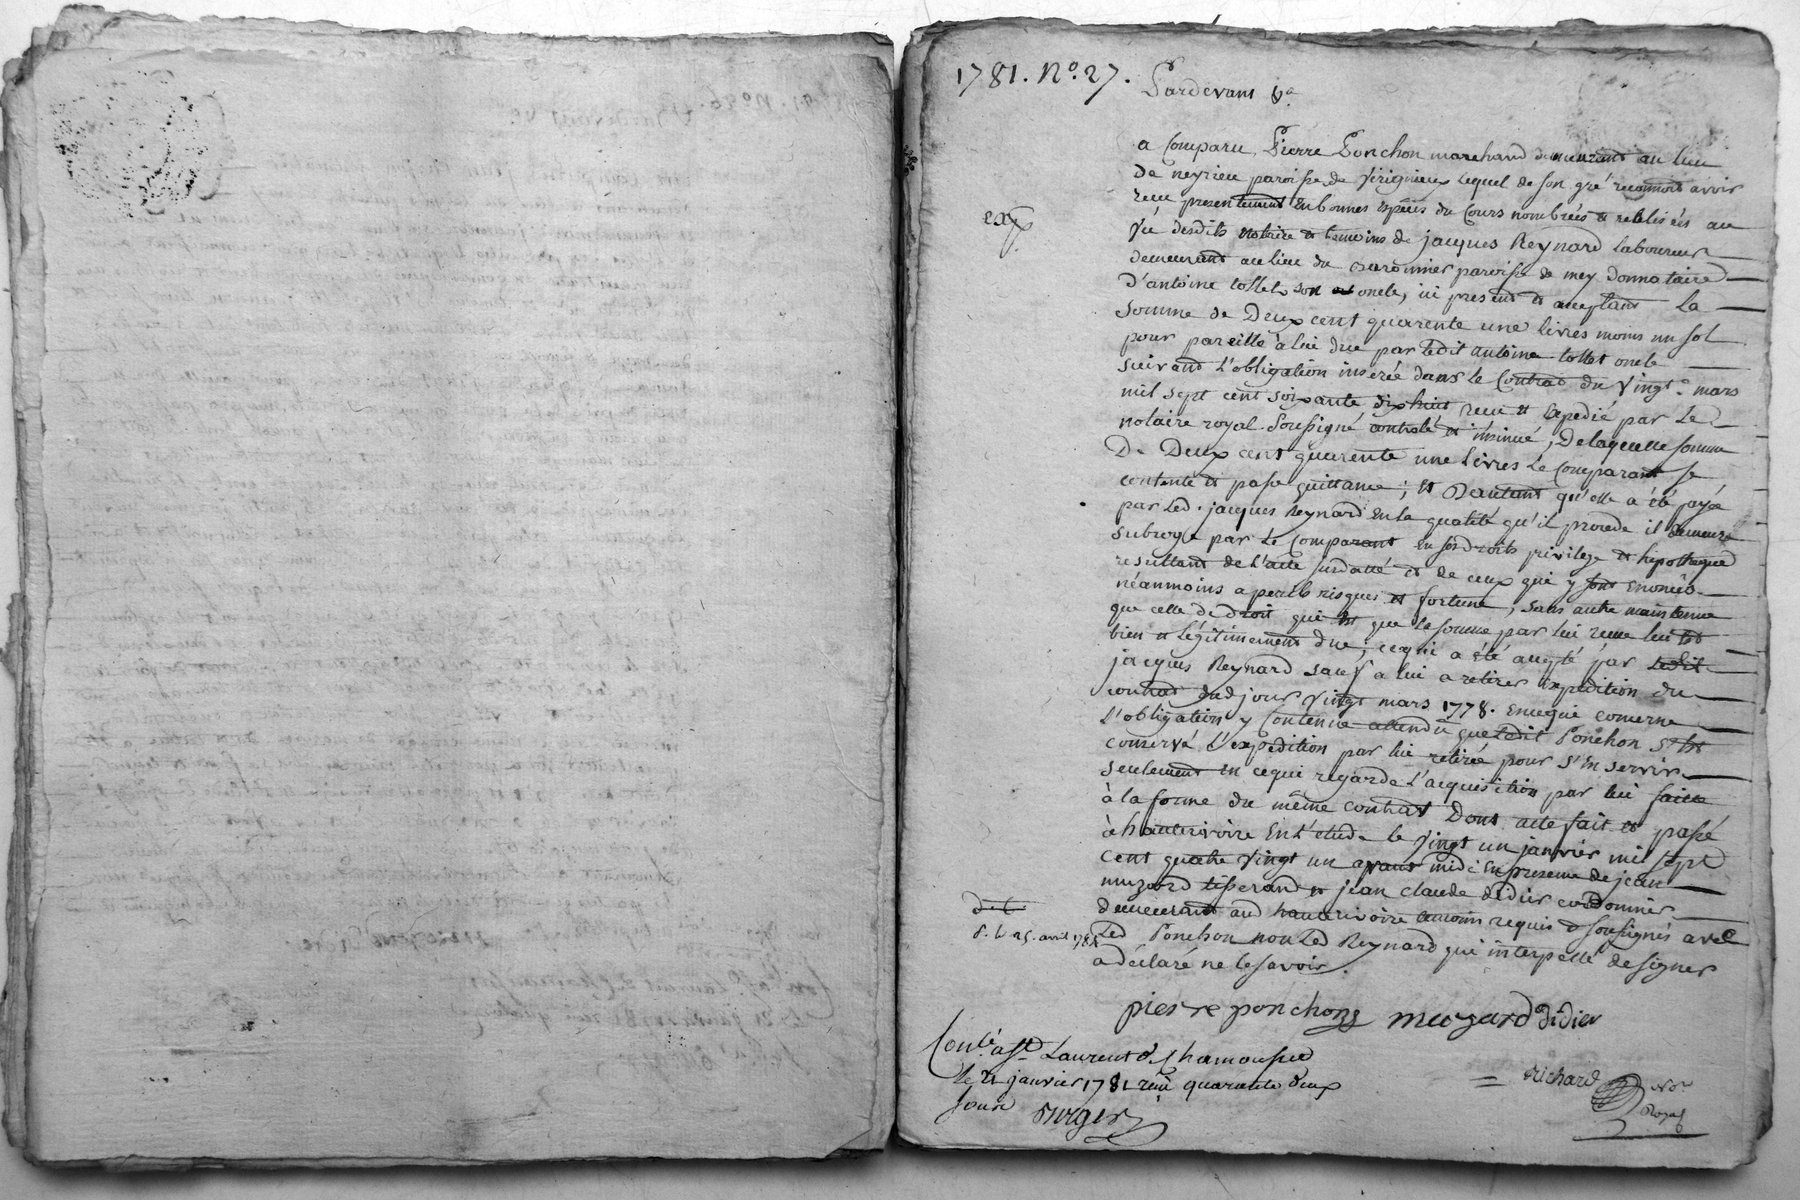 1781. No. 27.
Pardevant &a
a Comparu Pierre Ponchon marchand demeurant au lieu
De neyrieu paroisse de Virignieux Lequel de son gré reconnoit avoir
exp
receu presentement en bonnes especes du Cours nombrées et retirées au
vû desdits notaire et temoins de jacques Reynard laboureur
demeurant au lieu du paroisse de mey Donnataire
D'antoine tollet son oncle, ici present et acceptant La
somme de Deux cent quarente une livres moins un sol
pour pareille à lui due par ledit antoine tollet oncle
suivant L'obligation inserée dans le Contrat du Vingt mars
mil sept cent soixante dix huit receu et Expedié par Le
notaire royal soussigné controlé et insinué; De laquelle somme
De Deux cent quarente une livres Le Comparant se
contente et passe quittance; et Dautant qu'elle a été payée
par Led. jacques Reynard en la qualité qu'il procede il demeure
subrogé par Le Comparant en ses droits privilege et hipotheque
resultant de l'acte susdatté et de ceux qui y sont enoncés
néanmoins a perils risques et fortune, sans autre maintenue
que celle de droit qui est que la somme par lui receue lui est
bien et Légitimement due; ce qui a été accepté par ledit
jacques Reynard sauf a lui a retirer expedition du
contrat dud jour vingt mars 1778. en ce qui concerne
L'obligation y Contenue attendu que ledit Ponchon s'est
conservé L'expedition par lui retirée pour s'en servir
seulement en ce qui regarde L'acquisition par lui faitte
à la forme du même contrat Dont acte fait et passé
à hauterivoire En L'etude le Vingt un janvier mil sept
cent quatre vingt un avant midi En presence de jean
muzard tisserand et jean claude didier cordonnier
demeurant aud hauterivoire temoins requis et soussignés avec
d. l. 25. avril
Led Ponchon non Led Reynard qui interpellé de signer
a declaré ne le savoir.
pierre ponchon muzard didier
Conlé a St Laurent de Chamousset
le 21 janvier 1781 reçu quarante deux
sous Burger
Richard Nore
Royal